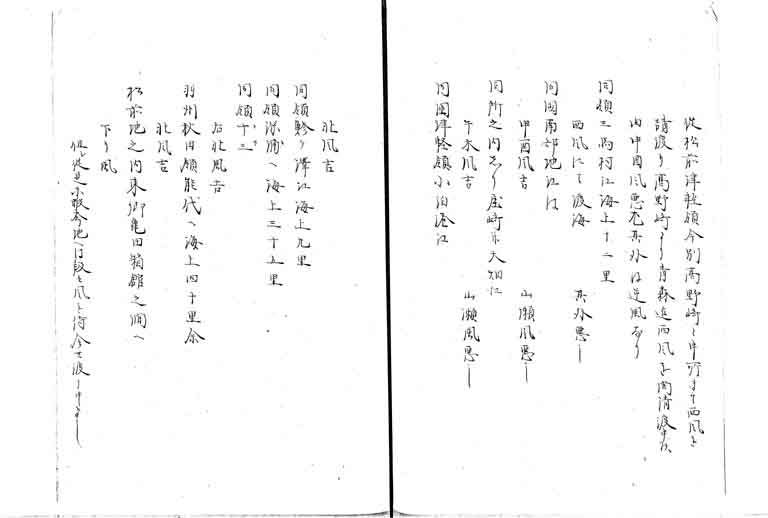 従松前津軽領今別高野崎と申所まて西風を
請渡り高野崎より青森迄西風を間請渡申候
内申酉風悪尤其外は逆風なり
同領三馬村江海上十二里
西風にて渡海　其外悪し
同国南部地江は
申酉風吉　山瀬風悪し
同所之内しり屋崎并大畑江
午未風吉　山瀬風悪し
同国津軽領小泊湊江
北風吉
同領鯵ヶ澤江海上九里
同領深浦へ海上三十五里
同領十三
右北風吉
羽州秋田領能代へ海上四十里余
北風吉
松前地之内東郷亀田箱館之澗へ
下り風
但従是蝦夷地へは段々風を待合せ渡し申よし